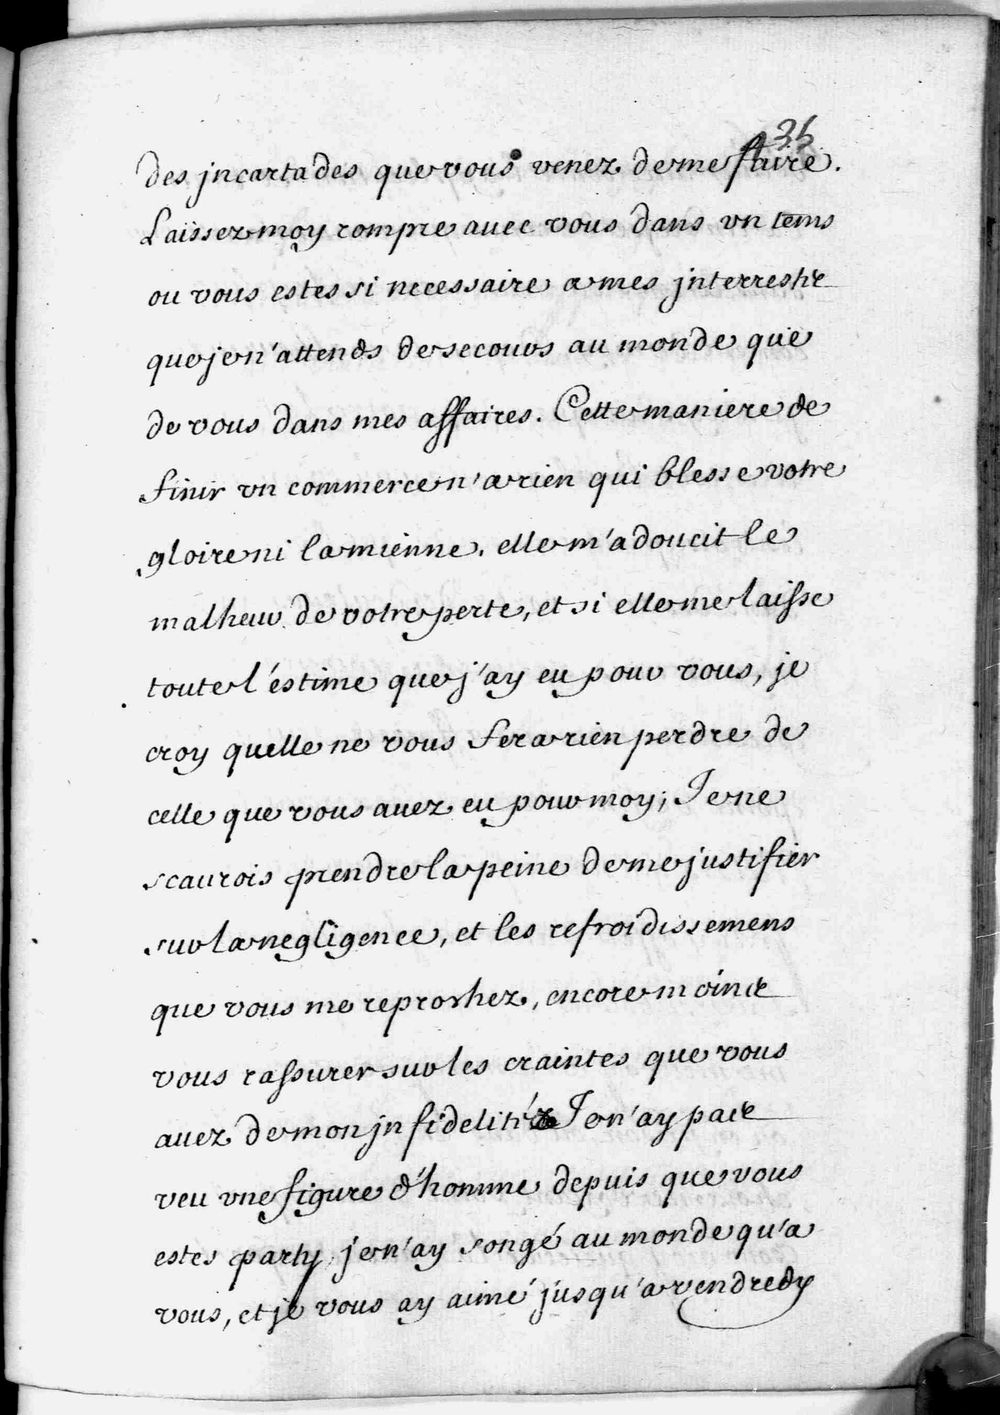 35
des jncartades que vous venez de me faire.
Laissez moy rompre avec vous dans vn tems
ou vous estes si necessaire a mes jnterrests
que je n'attends de secours au monde que
de vous dans mes affaires. Cette maniere de
finir vn commerce n'a rien qui blesse votre
gloire ni la mienne. elle m'adoucit le
malheur de votre perte, et si elle me laisse
toute l'éstime que j'ay eu pour vous, je
croy quelle ne vous fera rien perdre de
celle que vous auez eu pour moy; Je ne
scaurois prendre la peine de me justifier
sur la negligence, et les refroidissemens
que vous me reprochez, encore moins
vous rassurer sur les craintes que vous
auez de mon jnfidelité Je n'ay pas
veu vne figure d'homme depuis que vous
estes party, je n'ay songé au monde qu'a
vous, et je vous ay aimé jusqu'a vendredy